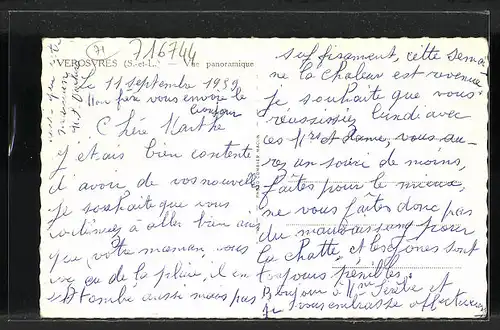 71
716744
VEROSVRES (S.-et-L.) — Vue panoramique
Le 11 septembre 1989
Mon frère vous envoie le
bonjour
Chère Marthe
J'etais bien contente
d'avoir de vos nouvelles
je souhaite que vous
continuez a aller bien ainsi
que votre maman, vous
avez eu de la pluie, il en
est tombé aussi mais pas
suffisament, cette semai
ne la chaleur est revenue
Je souhaite que vous
réussissiez lundi avec
ces Mr et Dame, vous au-
rez un souci de moins,
faites pour le mieux,
ne vous faites donc pas
du mauvais sang pour
la chatte, et les jones sont
toujours pénibles.
Bonjour à Mme et
Je vous embrasse affectueusement